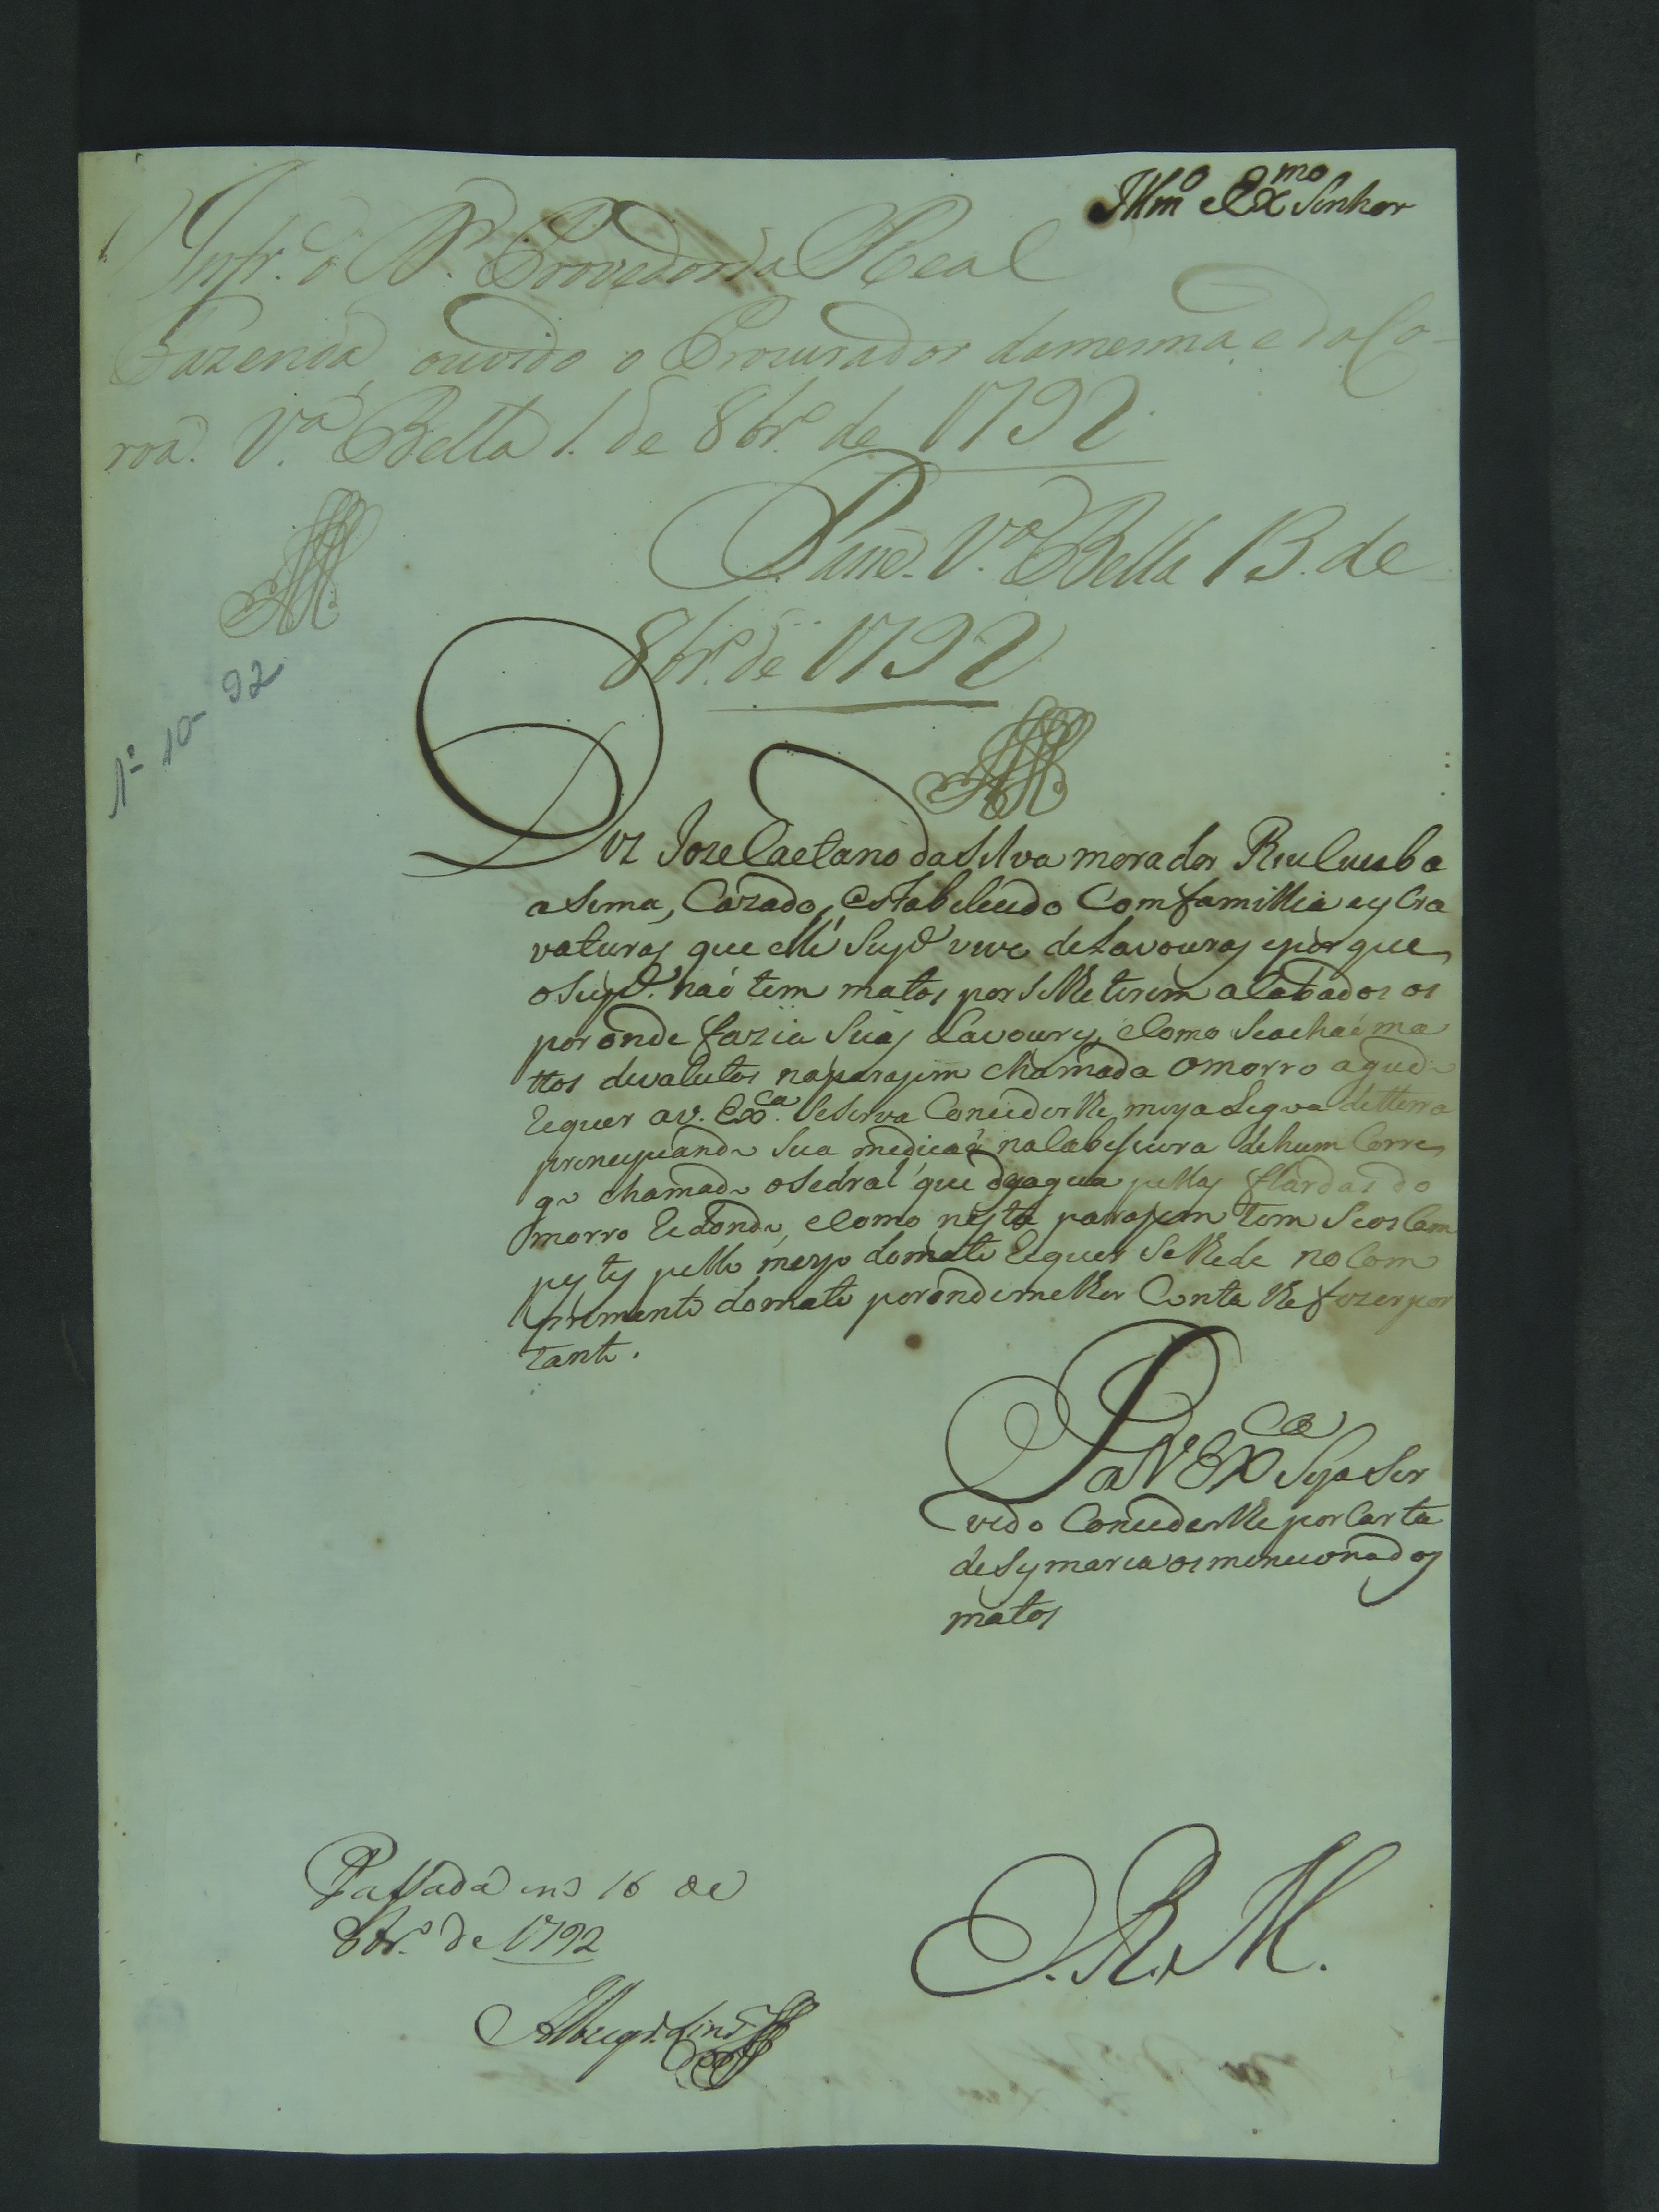 Illmo e Exmo Senhor
Infr.e o D.r Provedor da Real
Fazenda, ouvido o Procurador da mesma, e da Co-
roa. V.a Bella 1. de 8br.o de 1792
Passe. V.a Bella 13. de
8br.o de 1792
1º 10 - 92
Diz Joze Caetano da Silva morador Rio Cuiaba
a sima, Cazado, estabelecido Com familhia e esCra
vaturas que elle Supe vive de Lavouras e por que
o Supe. naó tem matos por se lhe terem acabados os
por onde fazia suas Lavouras, e Como se achaó ma
ttos devalutos na parajem chamada o morro agudo
Requer a V. Exca. Se Sirva Conceder lhe meya Legoa de tterra
prencipiando sua medicaó na Cabesseira de hum Corre
go chamado o Sedral que deyagua pellas fardas do
morro Redondo, e Como nesta parajem tem Seos Cam
pestes pello meyo do mato Requer Se lhe de no Com
primento do mato por onde melhor Conta lhe fizer por
tanto.
P a V Exca Seja Ser
vido Conceder lhe por Carta
de Sysmaria os mencionados
matos
Passada em 16 de
8br.o de 1792
E. R. M.